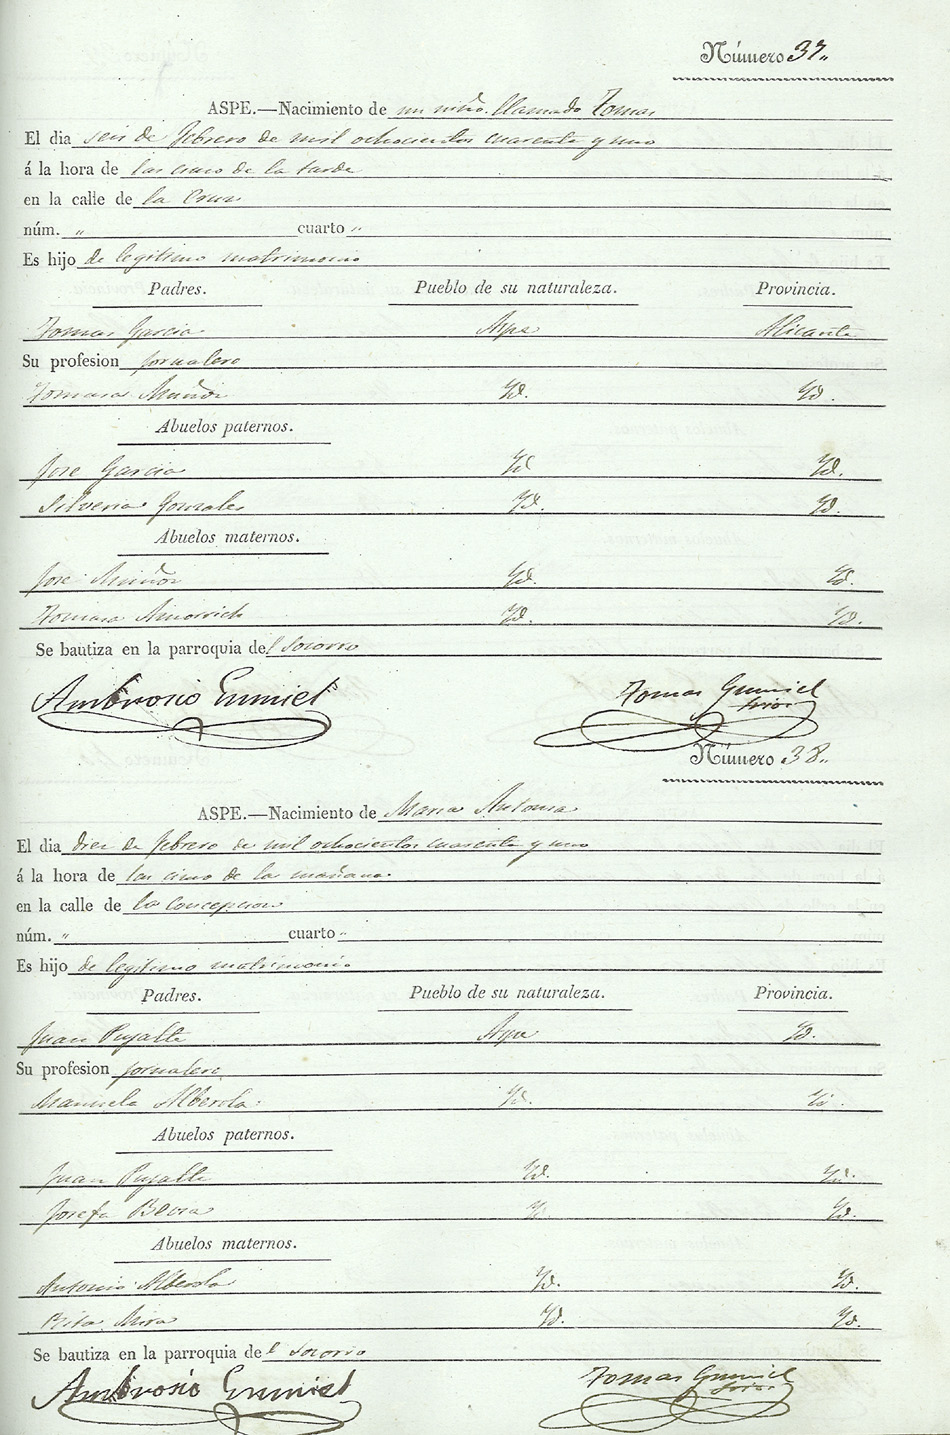 Número 37.,
ASPE.—Nacimiento de un niño llamado Tomas
El dia seis de febrero de mil ochocientos cuarenta y uno
á la hora de las cinco de la tarde
en la calle de la Cruz
núm. " cuarto "
Es hijo de legitimo matrimonio
Padres. Pueblo de su naturaleza. Provincia.
Tomas Garcia Aspe Alicante
Su profesion jornalero
Tomasa Muñoz Yd. Yd.
Abuelos paternos.
Jose Garcia Yd Yd.
Silveria Gonzales Yd. Yd.
Abuelos maternos.
Jose Muñoz Yd. Yd.
Tomasa Yd. Yd.
Se bautiza en la parroquia del Socorro
Ambrosio Gumiel Tomas Gumiel
Número 38.,
ASPE.—Nacimiento de Maria Antonia
El dia diez de febrero de mil ochocientos cuarenta y uno
á la hora de las cinco de la mañana
en la calle de la Concepcion
núm. " cuarto "
Es hijo de legitimo matrimonio
Padres. Pueblo de su naturaleza. Provincia.
Juan Pujalte Aspe Yd.
Su profesion jornalero
Manuela Alberola Yd. Yd.
Abuelos paternos.
Juan Pujalte Yd. Yd.
Josefa Yd. Yd.
Abuelos maternos.
Antonio Alberola Yd. Yd.
Rita Mira Yd. Yd.
Se bautiza en la parroquia del Socorro
Ambrosio Gumiel Tomas Gumiel